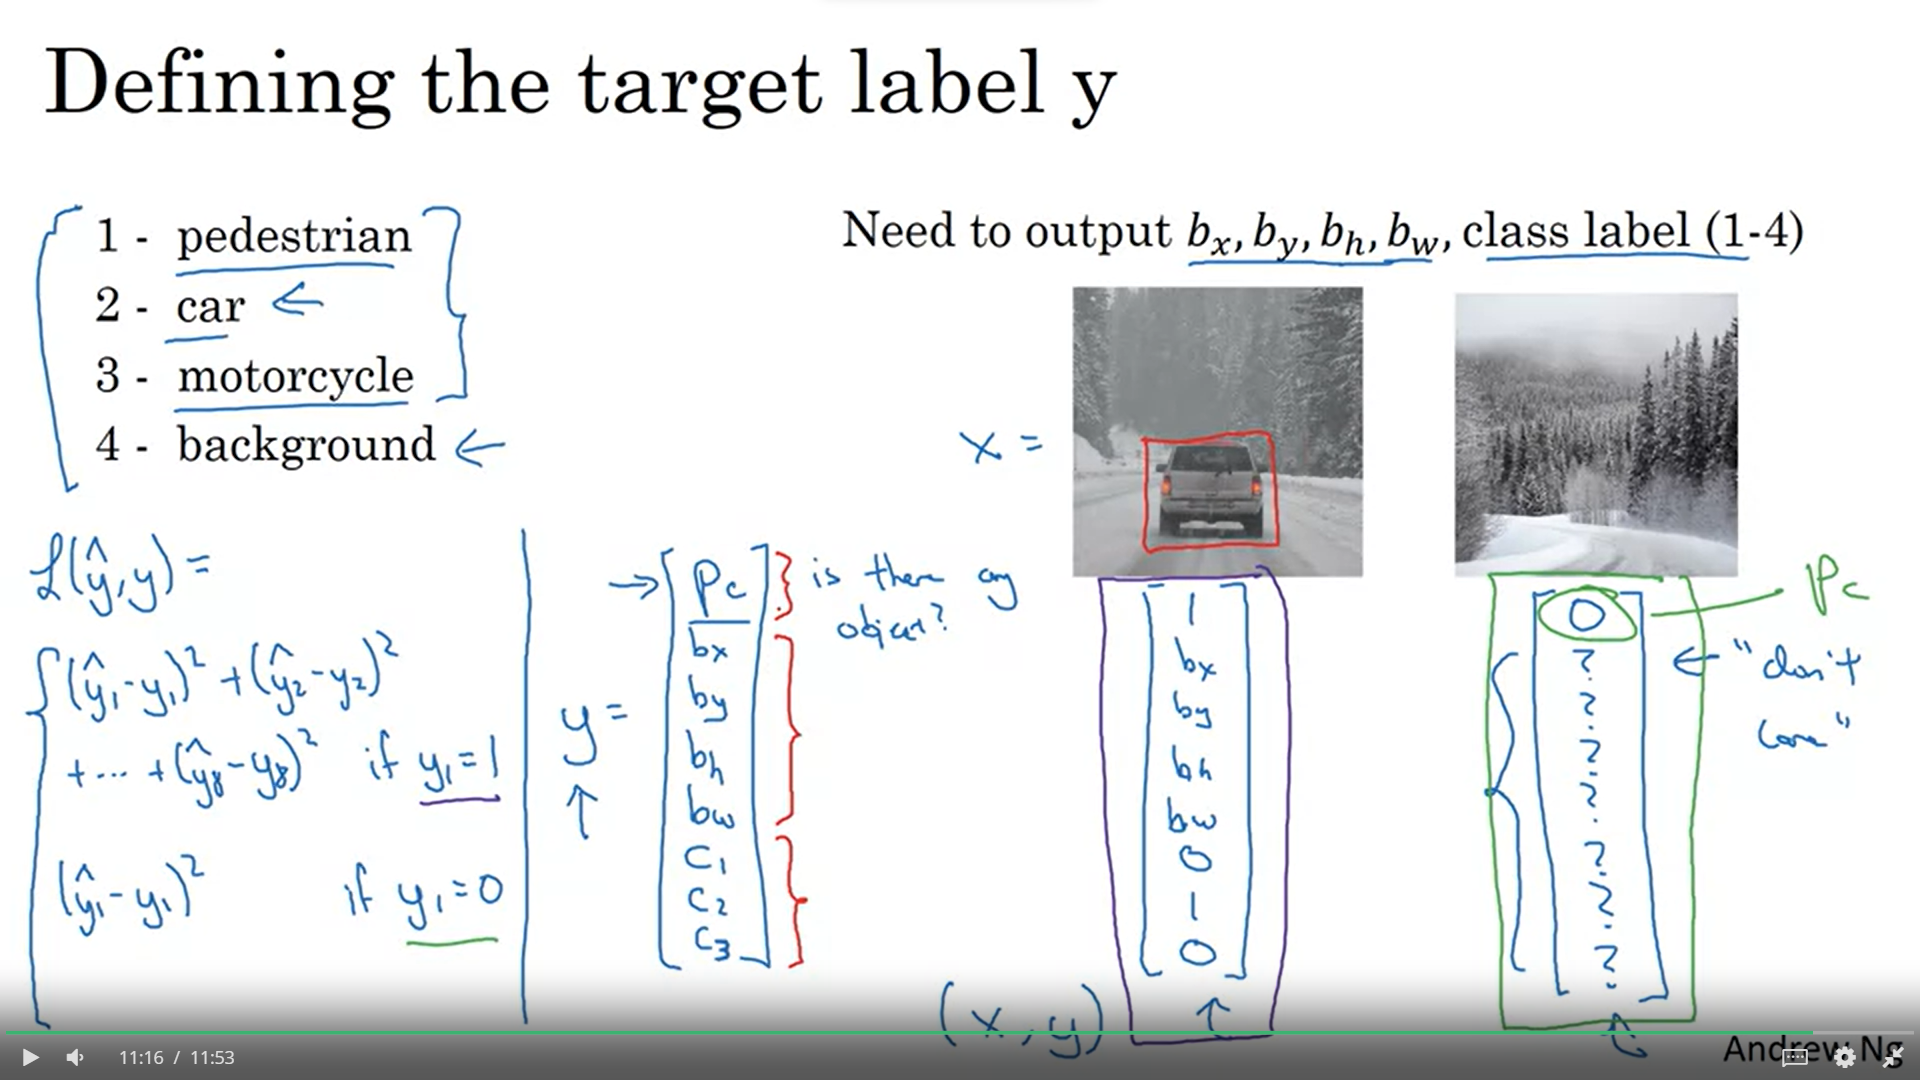 Defining the target label y
1 - pedestrian
2 - car ←
3 - motorcycle
4 - background ←
Need to output bx, by, bh, bw, class label (1-4)
x =
ℒ(ŷ,y) =
(ŷ1-y1)² + (ŷ2-y2)²
+ ... + (ŷ8-y8)² if y1=1
(ŷ1-y1)² if y1=0
y =
↑
→ pc
bx
by
bh
bw
c1
c2
c3
is there any
object?
1
bx
by
bh
bw
0
1
0
↑
(x,y)
0
?
?
?
?
?
?
?
pc
← "don't
care"
Andrew Ng
11:16 / 11:53